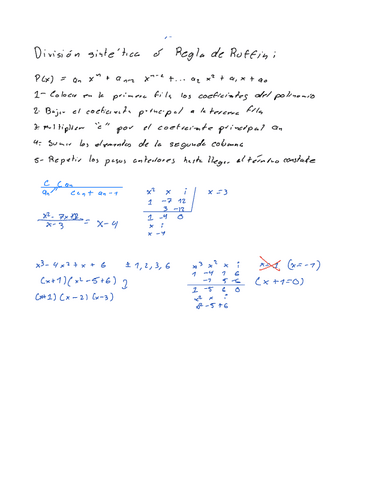 División sintética ó Regla de Ruffini
P(x) = aₙ xⁿ + aₙ₋₁ xⁿ⁻¹ + ... a₂ x² + a₁ x + a₀
1- Colocar en la primera fila los coeficientes del polinomio
2- Bajar el coeficiente principal a la tercera fila
3- multiplicar "c" por el coeficiente principal aₙ
4- Sumar los elementos de la segunda columna
5- Repetir los pasos anteriores hasta llegar al término constate
x² x i x = 3
1 -7 12
3 -12
1 -4 0
x i
x - 4
x³ - 4x² + x + 6 ± 1, 2, 3, 6
(x+1)(x² - 5 + 6)
(x+1)(x-2)(x-3)
x³ x² x i
1 -4 1 6
-1 5 -6
1 -5 6 0
x² x i
x² - 5 + 6
(x = -1)
(x + 1 = 0)